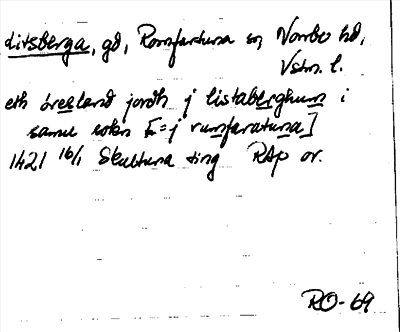 Litsberga, gd, Romfartuna sn, Norrbo hd,
Vstm. l.
eth öresland jordh j listaberghum i
samu sokn [=j rumfaratuna]
1421 16/1 Skultuna ting RAp or.
RO-69